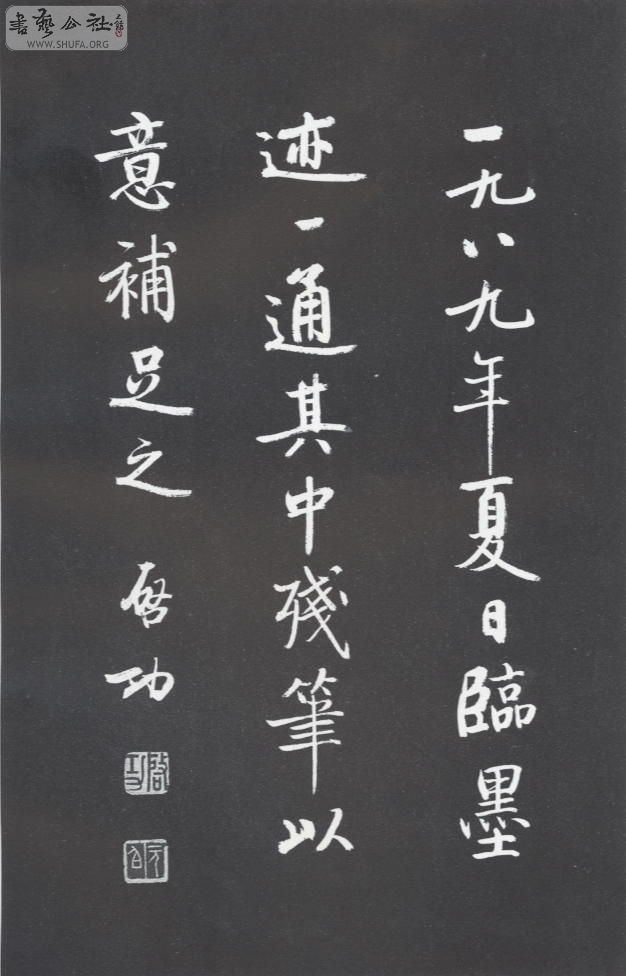 一九八九年夏日臨墨
迹一通其中殘筆以
意補足之 啓功
啓功
元白
書藝公社
WWW.SHUFA.ORG